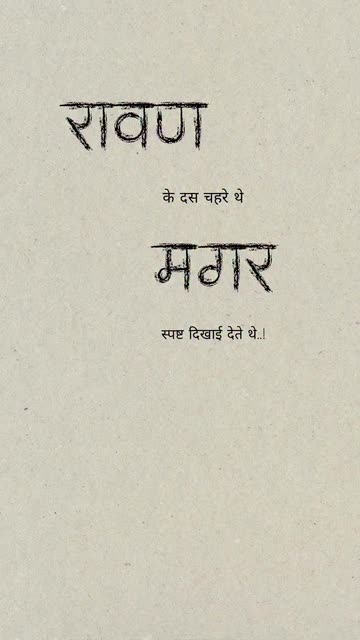 रावण
के दस चहरे थे
मगर
स्पष्ट दिखाई देते थे..!